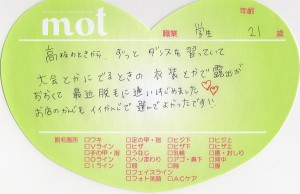 mot
職業 学生
年齢 21 歳
高校のときから、ずっとダンスを習っていて
大会とかにでるときの衣装とかで露出が
おおくて最近脱毛に通いはじめました♡♡
お店のかんじもイイかんじで選んでよかったです!!
脱毛箇所 □ワキ □足の甲・指 □ヒジ下 □ヒザ上
□Vライン □ヒザ □ヒザ下
□手の甲・指 □うなじ □乳輪 □胸・おしり
□Oライン □ヘソ周り □アゴ・鼻下 □背中
□Iライン □顔 □胸 □腰
□フェイスライン
□フォト美顔 □ACケア